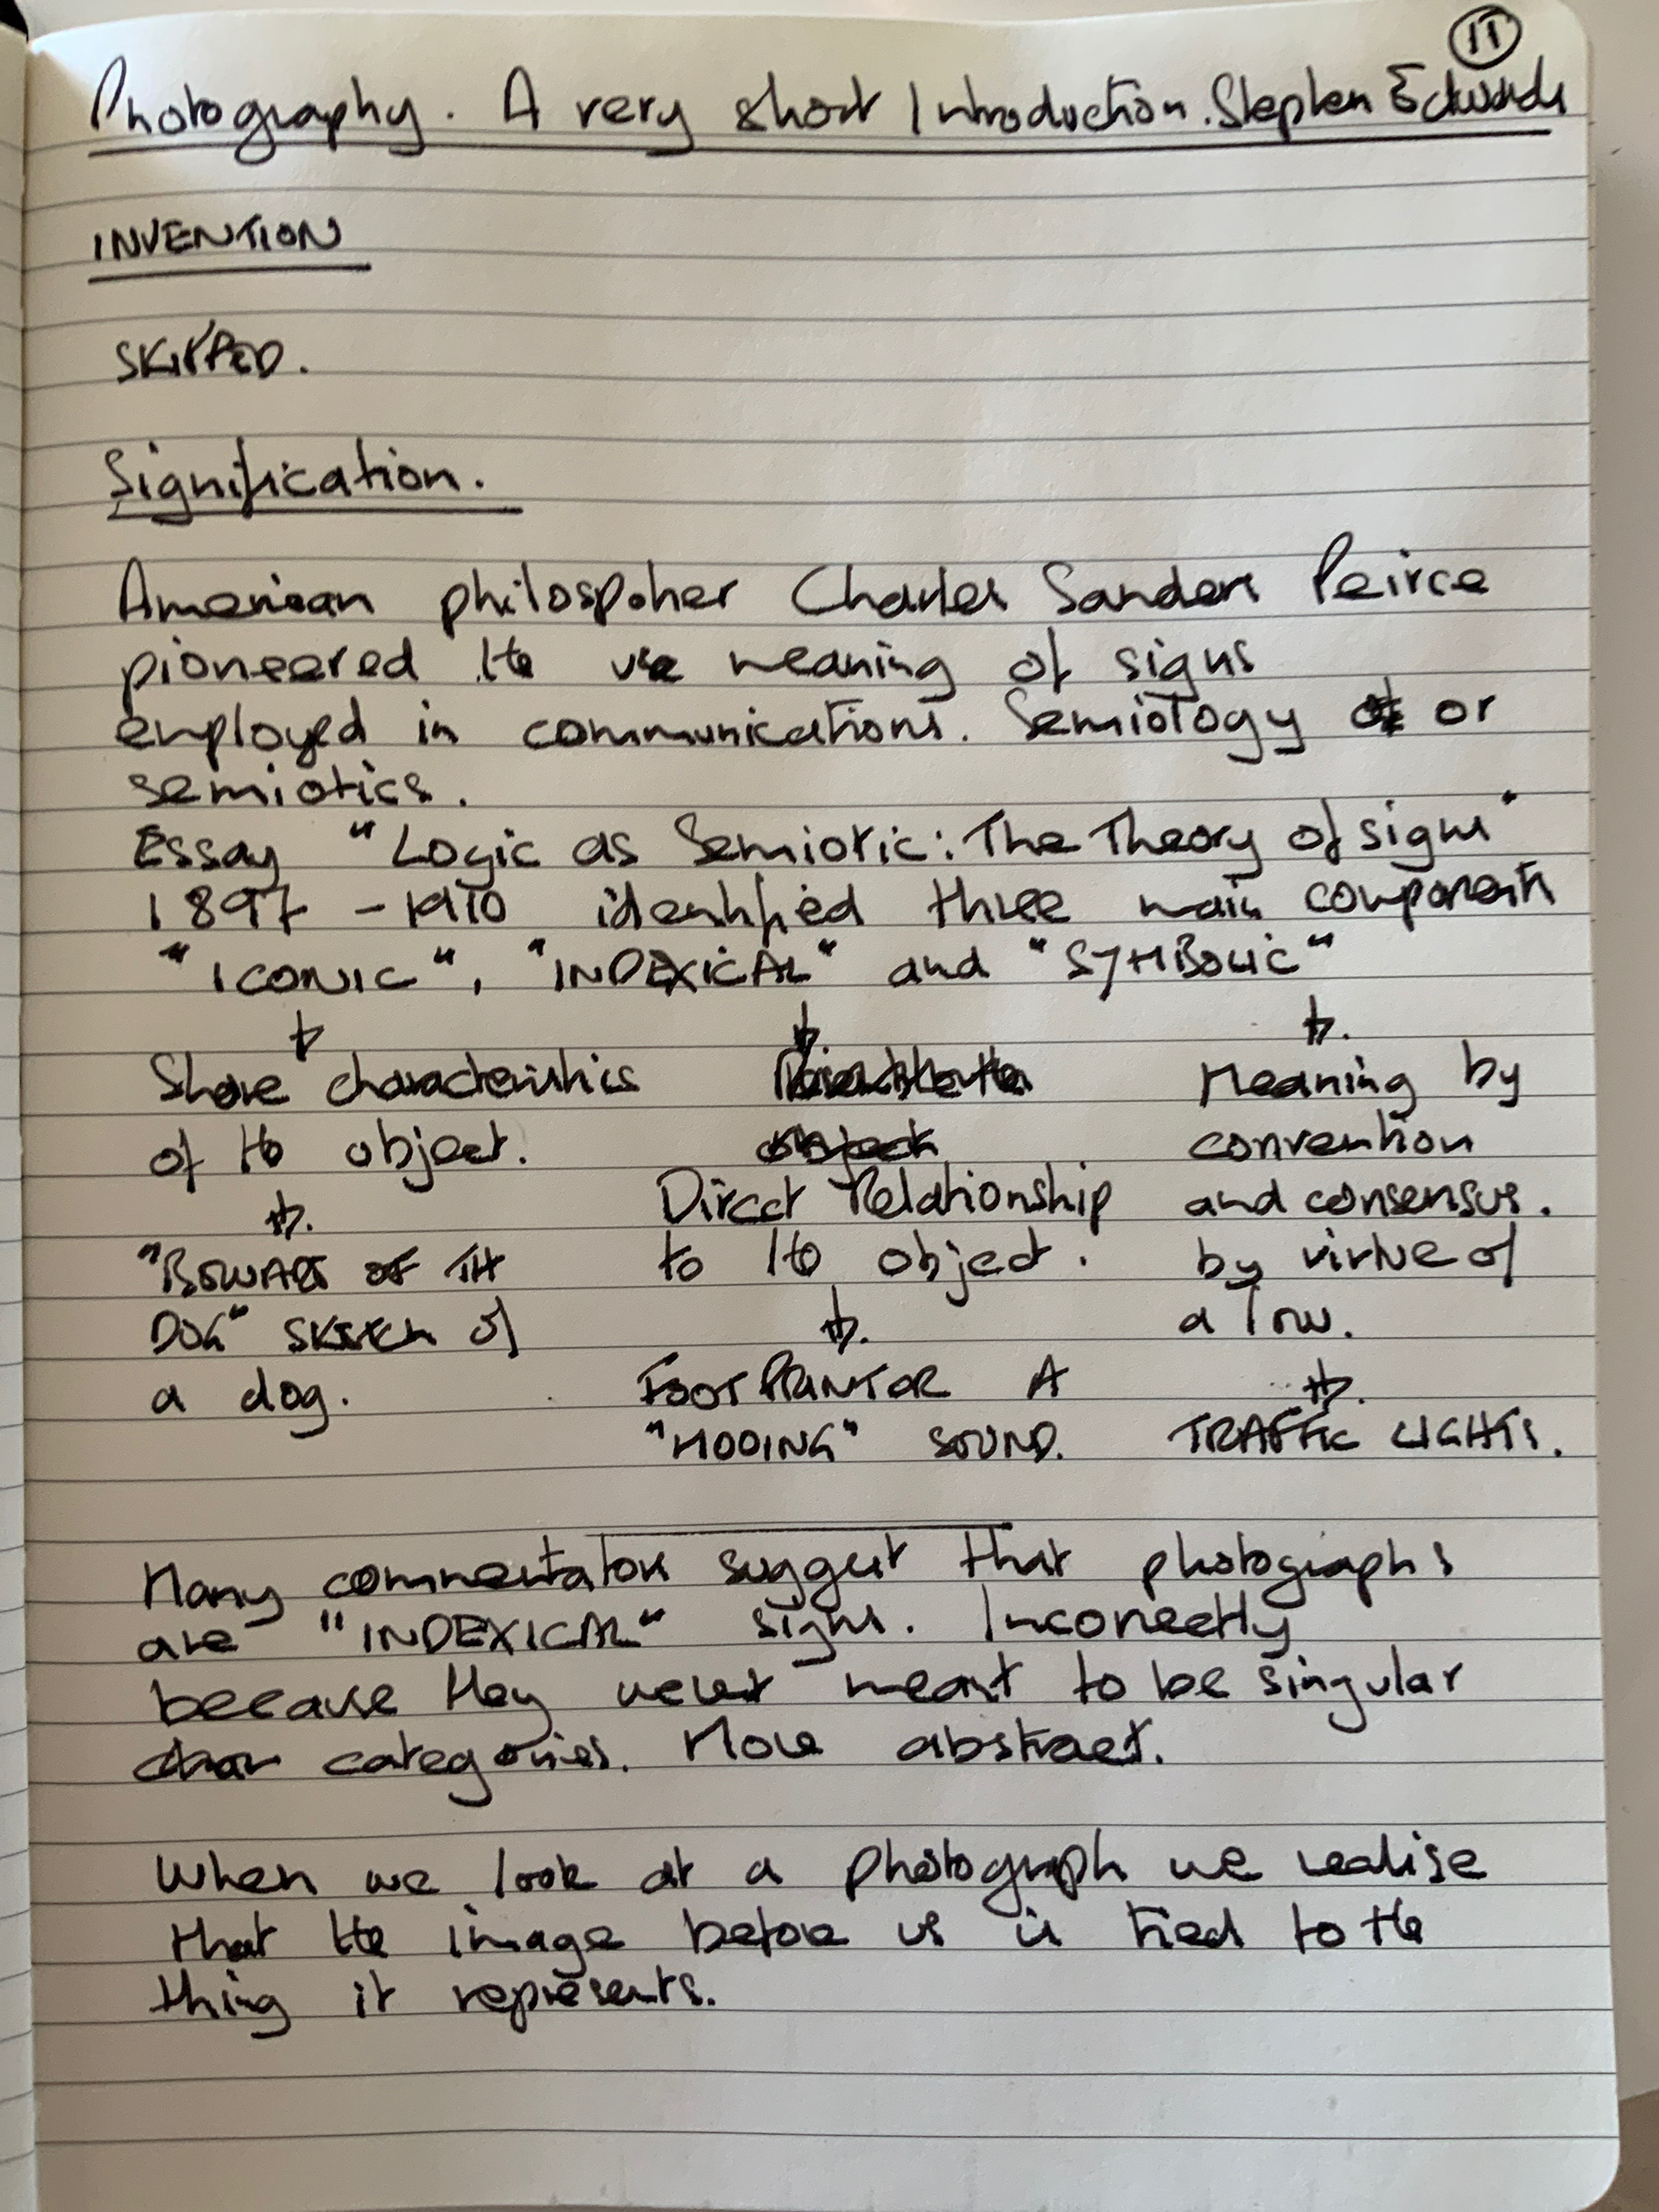 11
Photography. A very short Introduction. Stephen Edwards
INVENTION
SKIPPED.
Signification.
American philospoher Charles Sanders Peirce
pioneered the use meaning of signs
employed in communications. Semiology or
semiotics.
Essay "Logic as Semiotic: The Theory of signs"
1897 - 1910 identified three main components
"ICONIC", "INDEXICAL" and "SYMBOLIC"
Share characteristics
of the object.
"BEWARE OF TH
DOG" SKETCH of
a dog.
Direct Relationship
to the object.
FOOTPRINT OR A
"MOOING" SOUND.
Meaning by
convention
and consensus.
by virtue of
a law.
TRAFFIC LIGHTS.
Many commentators suggest that photographs
are "INDEXICAL" signs. Incorrectly
because they meant to be singular
categories. More abstract.
When we look at a photograph we realise
that the image before us is tied to the
thing it represents.